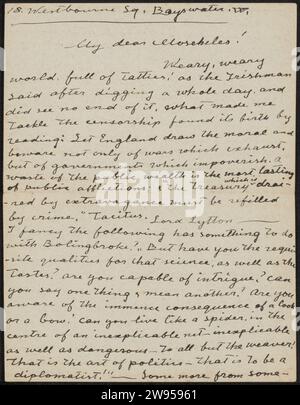 18. Westbourne Sq. Bayswater. W.
My dear Moscheles!
Weary, weary
world, full of tatties! as the Irishman
said after digging a whole day, and
did see no end of it, what made me
tackle the censorship found its birth by
reading: Let England draw the moral and
beware not only of wars which exhaust,
but of governments which impoverish. A
waste of the public wealth is the most lasting
of public afflictions; the Treasury which is drai-
red by extravagance must be refilled
by crime," Tacitus. Lord Lytton —
I fancy the following has something to do
with Bolingbroke:, But have you the requi-
site qualities for that science, as well as the
tastes? are you capable of intrigue? can
you say one thing & mean another? Are you
aware of the immence consequence of a look
or a bow? can you live like a spider, in the
centre of an inexplicable net - inexplicable
as well as dangerous - to all but the weaver?
That is the art of politics - that is to be a
diplomatist!" — Some more from some-
alamy
alamy
Image ID: 2W95961
www.alamy.com